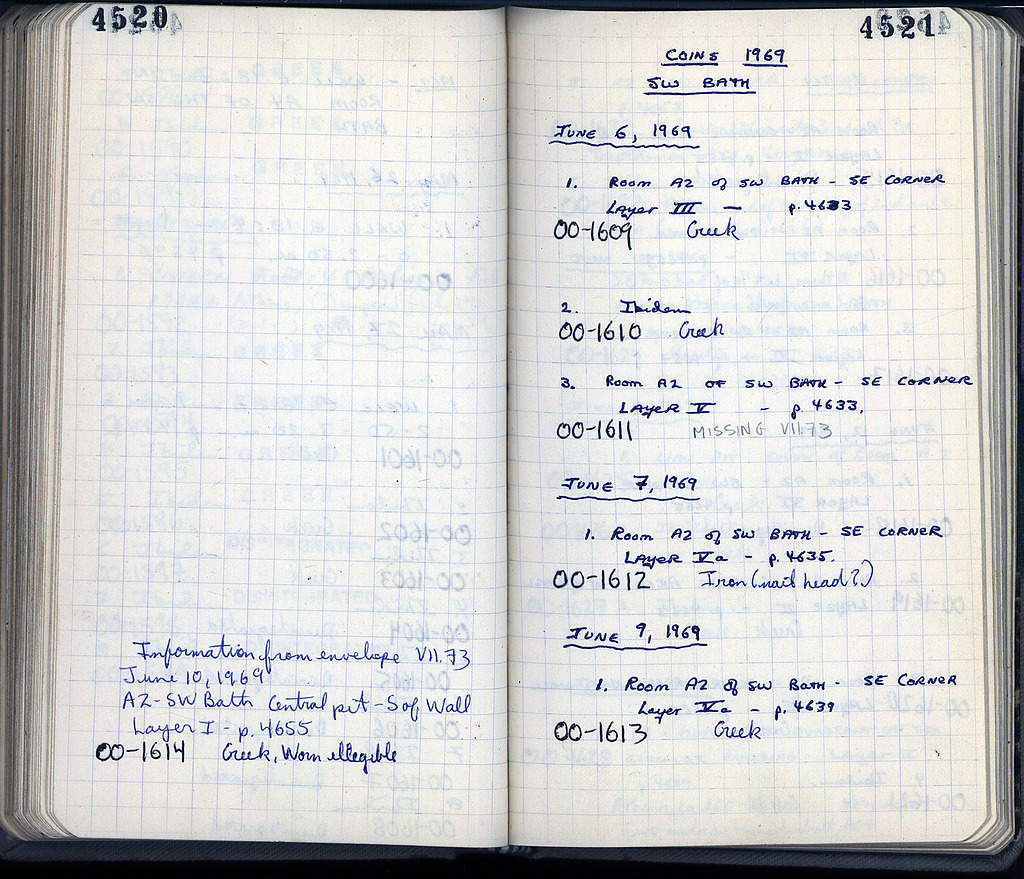 4520
Information from envelope VII.73
June 10, 1969
A2-SW Bath Central pit - S of Wall
Layer I - p. 4655
00-1614 Greek, Worn illegible
4521
COINS 1969
SW BATH
JUNE 6, 1969
1. ROOM A2 of SW BATH - SE CORNER
LAYER III - p. 4633
00-1609 Greek
2. Ibidem
00-1610 Greek
3. ROOM A2 OF SW BATH - SE CORNER
LAYER V - p. 4633.
00-1611 MISSING VII.73
JUNE 7, 1969
1. ROOM A2 of SW BATH - SE CORNER
LAYER Va - p. 4635.
00-1612 Iron (nail head?)
JUNE 9, 1969
1. ROOM A2 of SW BATH - SE CORNER
LAYER Va - p. 4639
00-1613 Greek